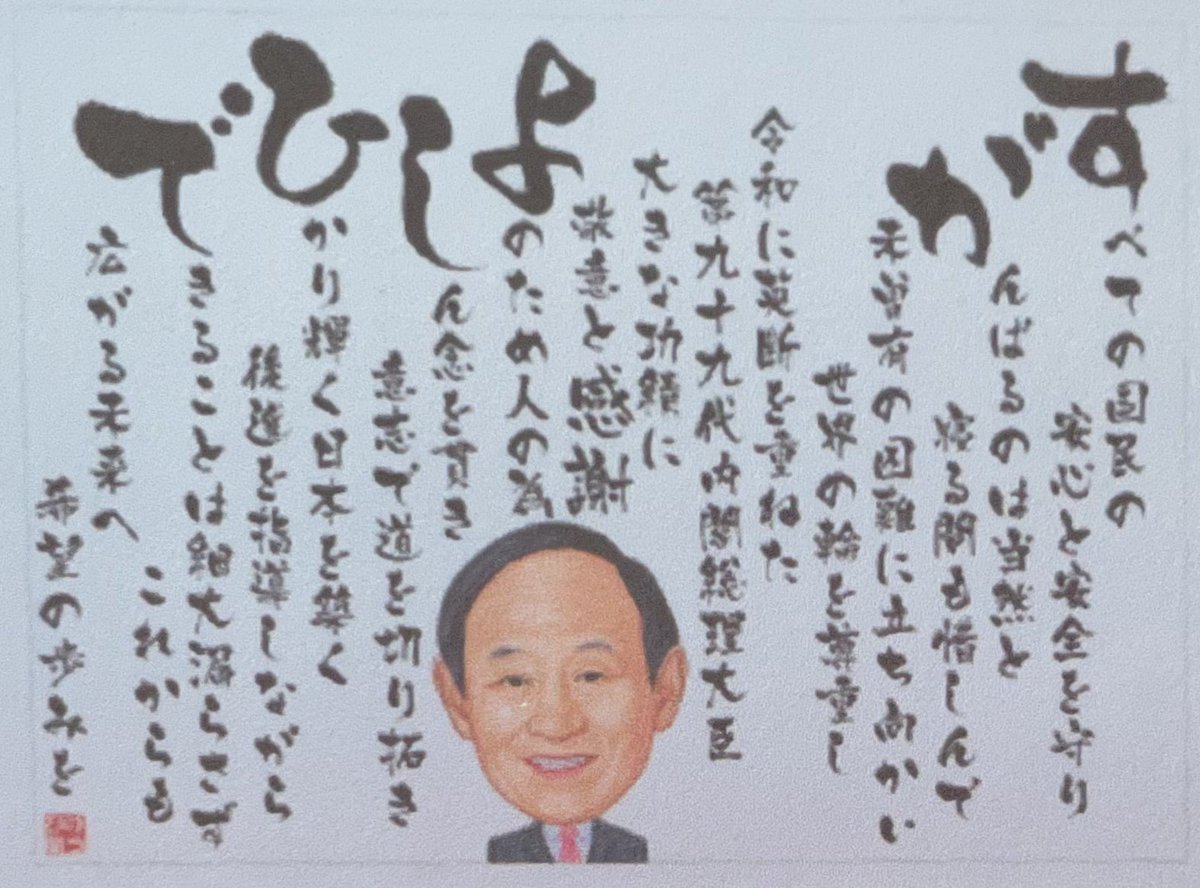 すべての国民の
安心と安全を守り
がんばるのは当然と
寝る間も惜しんで
未曾有の困難に立ち向かい
世界の輪を尊重し
令和に英断を重ねた
第九十九代内閣総理大臣
大きな功績に
敬意と感謝
よのため人の為
しん念を貫き
意志で道を切り拓き
ひかり輝く日本を築く
後進を指導しながら
できることは細大漏らさず
これからも
広がる未来へ
希望の歩みを